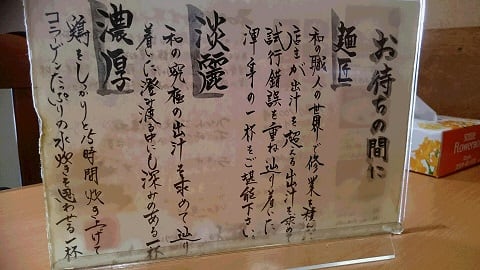 お待ちの間に
麺匠
和の職人の世界で修業を積んだ
店主が出汁を超える出汁を求めて
試行錯誤を重ね辿り着いた
渾身の一杯をご堪能下さい
淡麗
和の究極の出汁を求めて辿り
着いた澄み渡る中にも深みのある一杯
濃厚
鶏をしっかりと15時間炊き上げて
コラーゲンたっぷりの水炊きを思わせる一杯